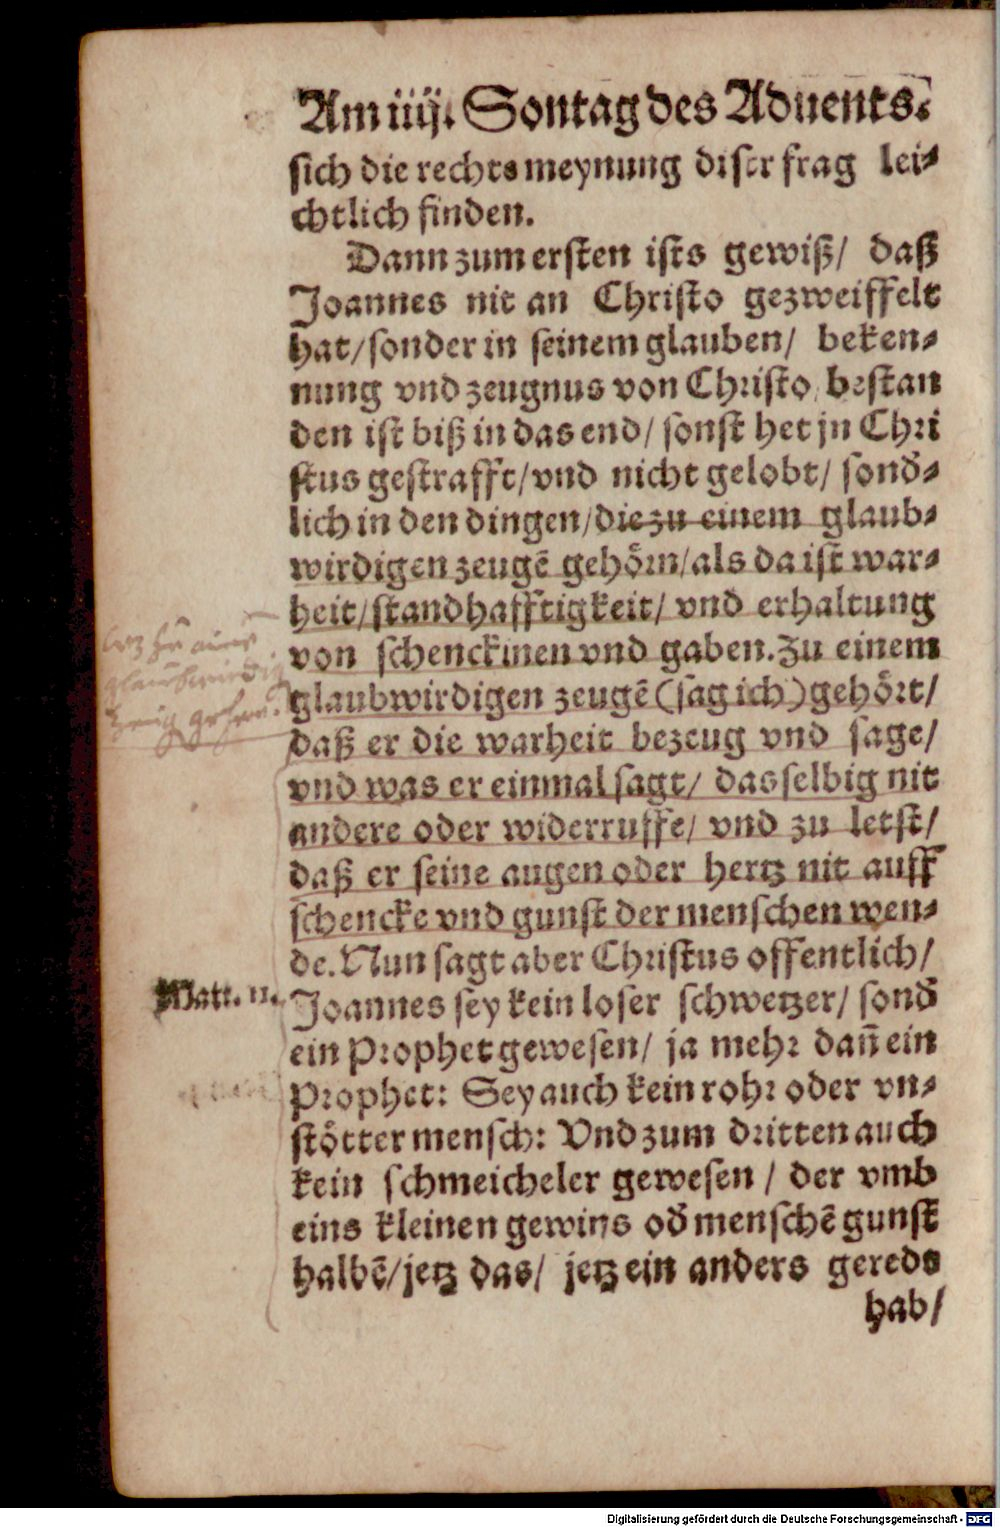 Am iiij. Sontag des Aduents.
sich die rechte meynung diser frag lei⸗
chtlich finden.
Dann zum ersten ists gewiß/ daß
Joannes nit an Christo gezweiffelt
hat/sonder in seinem glauben/ beken⸗
nung vnd zeugnus von Christo/ bestan
den ist biß in das end/ sonst het jn Chri
stus gestrafft/vnd nicht gelobt/ sond̄⸗
lich in den dingen/die zu einem glaub⸗
wirdigen zeugē gehörn/als da ist war⸗
heit/standhafftigkeit/ vnd erhaltung
von schenckinen vnd gaben. Zu einem
glaubwirdigen zeugē (sag ich) gehört/
daß er die warheit bezeug vnd sage/
vnd was er einmal sagt/ dasselbig nit
andere oder widerruffe/ vnd zu letst/
daß er seine augen oder hertz nit auff
schencke vnd gunst der menschen wen⸗
de. Nun sagt aber Christus offentlich/
Matt. 11.
Joannes sey kein loser schwetzer/ sond̄
ein Prophet gewesen/ ja mehr dañ ein
Prophet: Sey auch kein rohr oder vn⸗
stötter mensch: Vnd zum dritten auch
kein schmeicheler gewesen / der vmb
eins kleinen gewins od̄ menschē gunst
halbē/jetz das/ jetz ein anders geredt
hab/
Digitalisierung gefördert durch die Deutsche Forschungsgemeinschaft - DFG